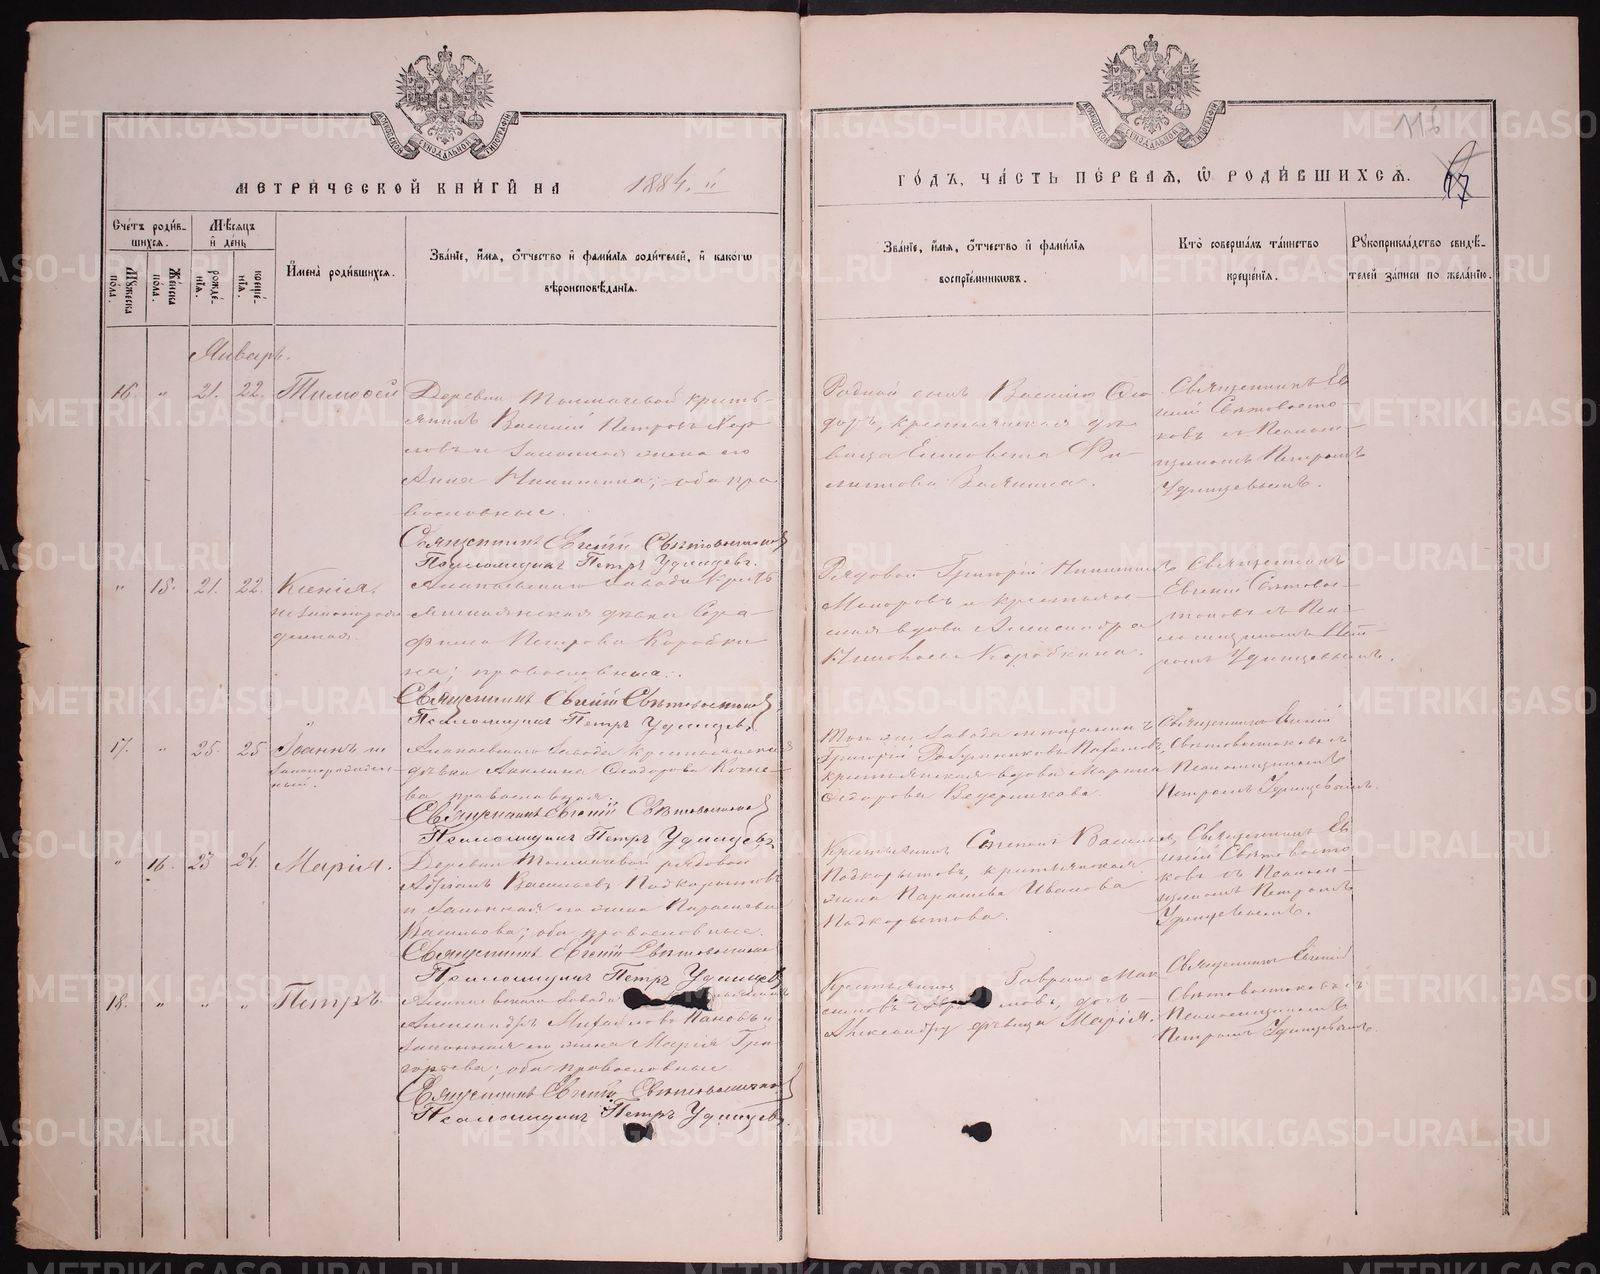 МЕТРИЧЕСКОЙ КНИГИ НА 1884 й
ГОДЪ, ЧАСТЬ ПЕРВАЯ, Ѡ РОДИВШИХСЯ.
Счетъ родившихся.
Мужеска пола.
Женска пола.
Мѣсяцъ и день
рожденія.
крещенія.
Имена родившихся.
Званіе, имя, отчество и фамилія родителей, и какогѡ
вѣроисповѣданія.
Званіе, имя, отчество и фамилія
воспріемниковъ.
Кто совершалъ таинство
крещенія.
Рукоприкладство свидѣ-
телей записи по желанію.
Январь.
16. " 21. 22. Тимоѳей
Деревни Толмачевой кресть-
янинъ Василій Петровъ
и законная жена его
Анна Никитина; оба пра
вославные.
Священникъ Евгеній Свѣтовостоковъ
Псаломщикъ Петръ Удинцевъ.
Родной сынъ Василія Ѳео
доръ, крестьянская дѣ
вица Елисовета Фи
липпова
Священникъ Ев
геній Свѣтовосто-
ковъ съ Псалом-
щикомъ Петромъ
Удинцевымъ.
" 15. 21. 22. Ксенія,
незаконнорож
денная.
Алапаевскаго завода кресть
янская дѣвка Сера-
фима Петрова Коробки
на; православная.
Священникъ Евгеній Свѣтовостоковъ
Псаломщикъ Петръ Удинцевъ.
Рядовой Григорій Никитинъ
Макаровъ и крестьян-
ская вдова Александра
Коробкина.
Священникъ
Евгеній Свѣтовос-
токовъ съ Пса-
ломщикомъ Пет-
ромъ Удинцевымъ.
17. " 25. 25 Іоаннъ не
законнорожден-
ный.
Алапаевскаго завода крестьянская
дѣвка Акилина Ѳеодорова Кочне-
ва православная.
Священникъ Евгеній Свѣтовостоковъ
Псаломщикъ Петръ Удинцевъ
Того же завода
Григорій
крестьянская вдова Марина
Ѳедорова
Священникъ Евгеній
Свѣтовостоковъ съ
Псаломщикомъ
Петромъ Удинцевымъ.
" 16. 23 24. Марія.
Деревни Толмачевой рядовой
Адріанъ Васильевъ Подкорытовъ
и законная его жена Параскева
Васильева; оба православные.
Священникъ Евгеній Свѣтовостоковъ
Псаломщикъ Петръ Удинцевъ
Крестьянинъ Степанъ
Подкорытовъ, крестьянская
жена Параскева Иванова
Подкорытова.
Священникъ Ев
геній Свѣтовосто
ковъ съ Псалом-
щикомъ Петромъ
Удинцевымъ.
18. " " " Петръ.
Алапаевскаго завода
Александръ Михайловъ Пановъ и
законная его жена Марія Гри
горьева; оба православные
Священникъ Евгеній Свѣтовостоковъ
Псаломщикъ Петръ Удинцевъ.
Крестьянинъ Гавріилъ Мак
симовъ дочь
Александру дѣвица Марія.
Священникъ Евгеній
Свѣтовостоковъ съ
Псаломщикомъ
Петромъ Удинцевымъ.
METRIKI.GASO-URAL.RU